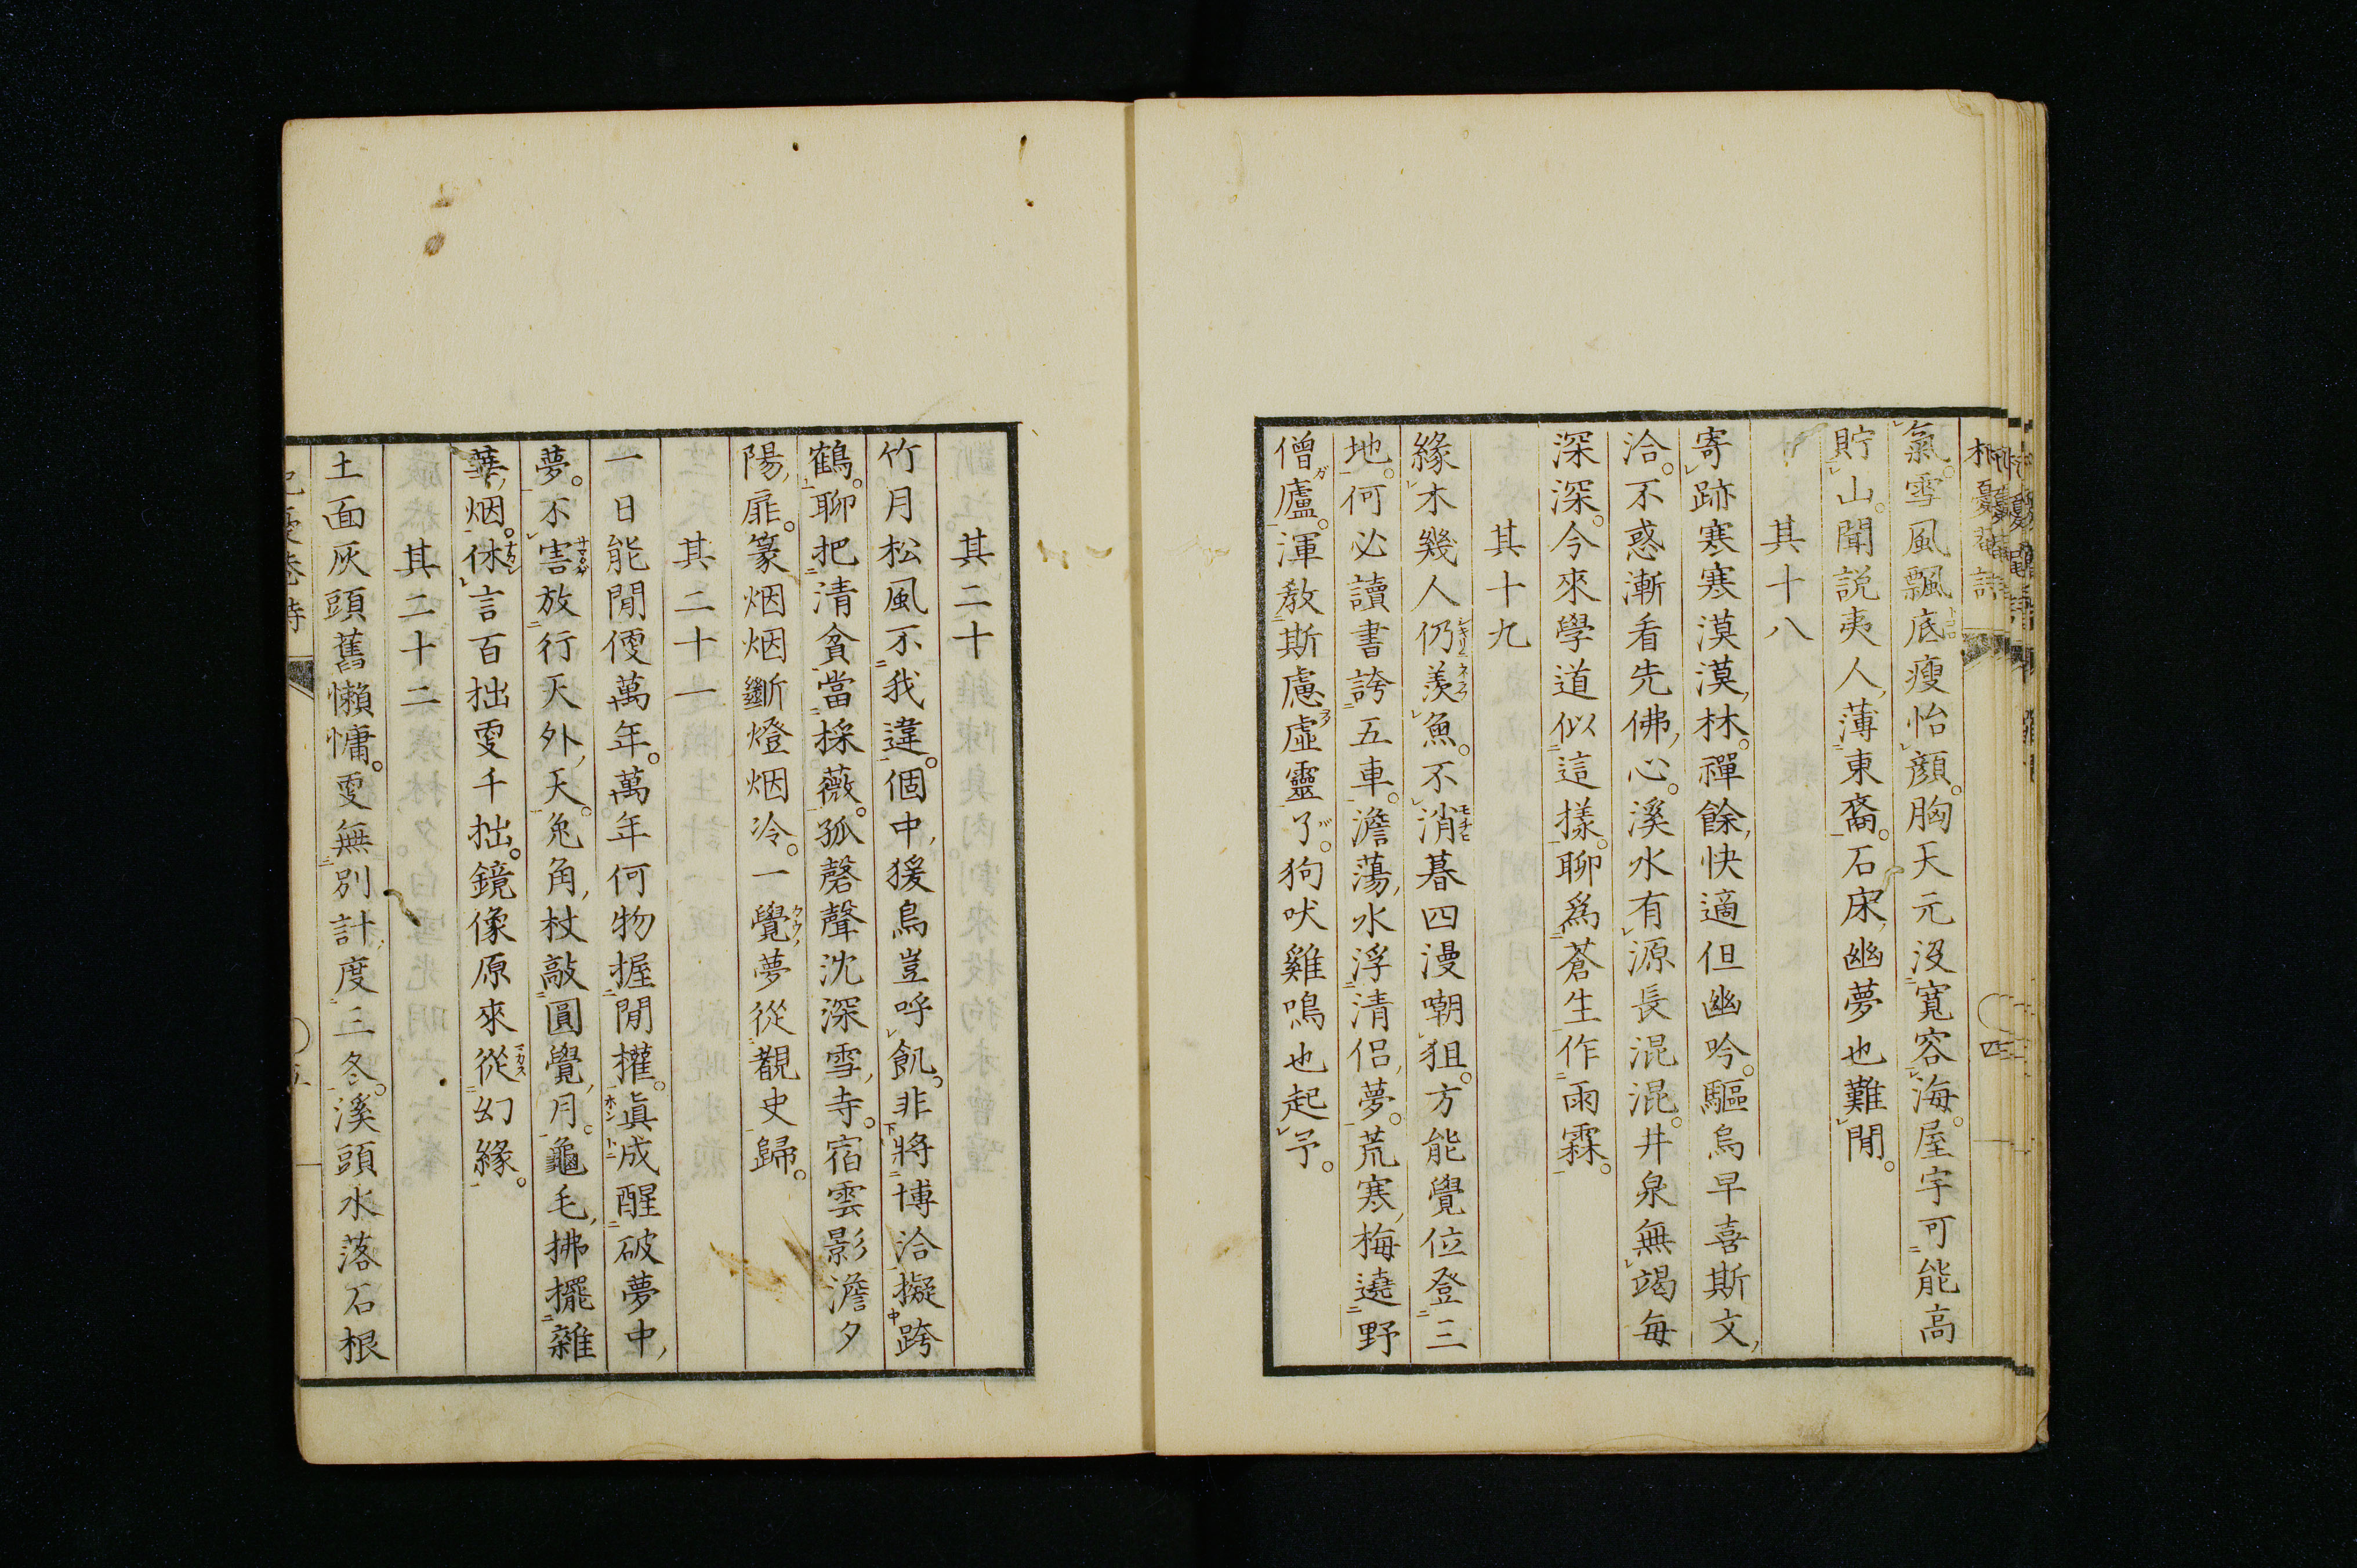 氣。雪風飄底瘦怡顏。胸天元沒寬容海。屋宇可能高
貯山。聞説夷人、薄東裔。石床、幽夢也難閒。
其十八
寄跡寒寒漠漠、林。禪餘、快適但幽吟。驅烏早喜斯文、
洽。不惑漸看先佛、心。溪水有源長混混。井泉無竭每
深深。今來學道似這樣。聊爲蒼生作雨霖。
其十九
緣木幾人仍羨魚。不消暮四漫嘲狙。方能覺位登三
地。何必讀書誇五車。澹蕩、水浮清侶、夢。荒寒、梅遶野
僧廬。渾教斯慮虛靈了。狗吠雞鳴也起予。
其二十
竹月松風不我違。個中、猨鳥豈呼飢。非將博洽擬跨
鶴。聊把清貧當採薇。孤磬聲沈深雪、寺。宿雲影澹夕
陽、扉。篆烟烟斷燈烟冷。一覺夢從觀史歸。
其二十一
一日能閒便萬年。萬年何物握閒權。眞成醒破夢中、
夢。不害放行天外、天。兔角、杖敲圓覺、月。龜毛、拂擺雜
華、烟。休言百拙更千拙。鏡像原來從幻緣。
其二十二
土面灰頭舊懶慵。更無別計、度三冬。溪頭水落石根